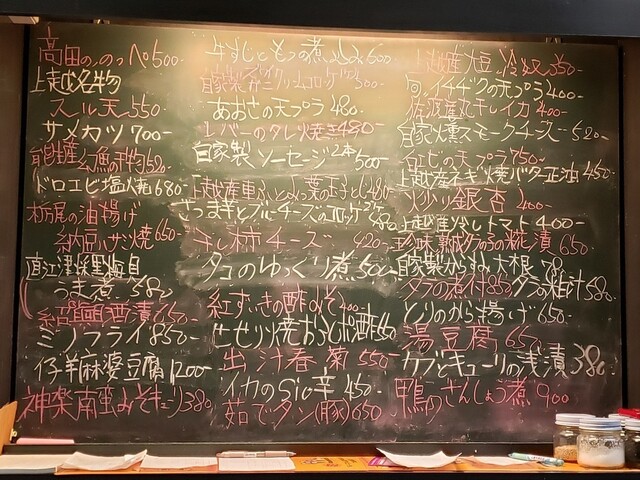 高田ののっぺ500-
上越名物
スルメ天550
サメカツ700-
幻魚の丸干520-
ドロエビ塩焼680-
栃尾の油揚げ
納豆ハサミ焼650
直江津採
うま煮580
紹興酒漬650
ミノフライ850-
仔羊麻婆豆腐1200-
神楽南蛮みそキューリ380
牛すじともつの煮込み600
自家製 カニクリームコロッケ 500-
あおさの天プラ480-
レバーのタレ焼き480-
自家製ソーセージ2本500-
上越産
さつま芋とブルーチーズのコロッケ 480
干し柿チーズ420-
タコのゆっくり煮500-
紅ずいきの酢みそ400-
せせり焼おろしポン酢650
出汁春菊550-
イカのSio辛450-
茹でタン(豚)650
上越産大豆冷奴350
旬イチヂクの天プラ400-
佐渡産丸干しイカ400-
自家燻スモークチーズ520-
白エビの天プラ750-
上越産ネギ焼バター正油450
火少り銀杏400
上越産冷しトマト400-
珍味 の糀漬650
自家製からすみ大根
タラの煮付850 タラの粕汁580
とりのから揚げ650
湯豆腐650
カブとキューリの浅漬380
鴨のさんしょう煮900